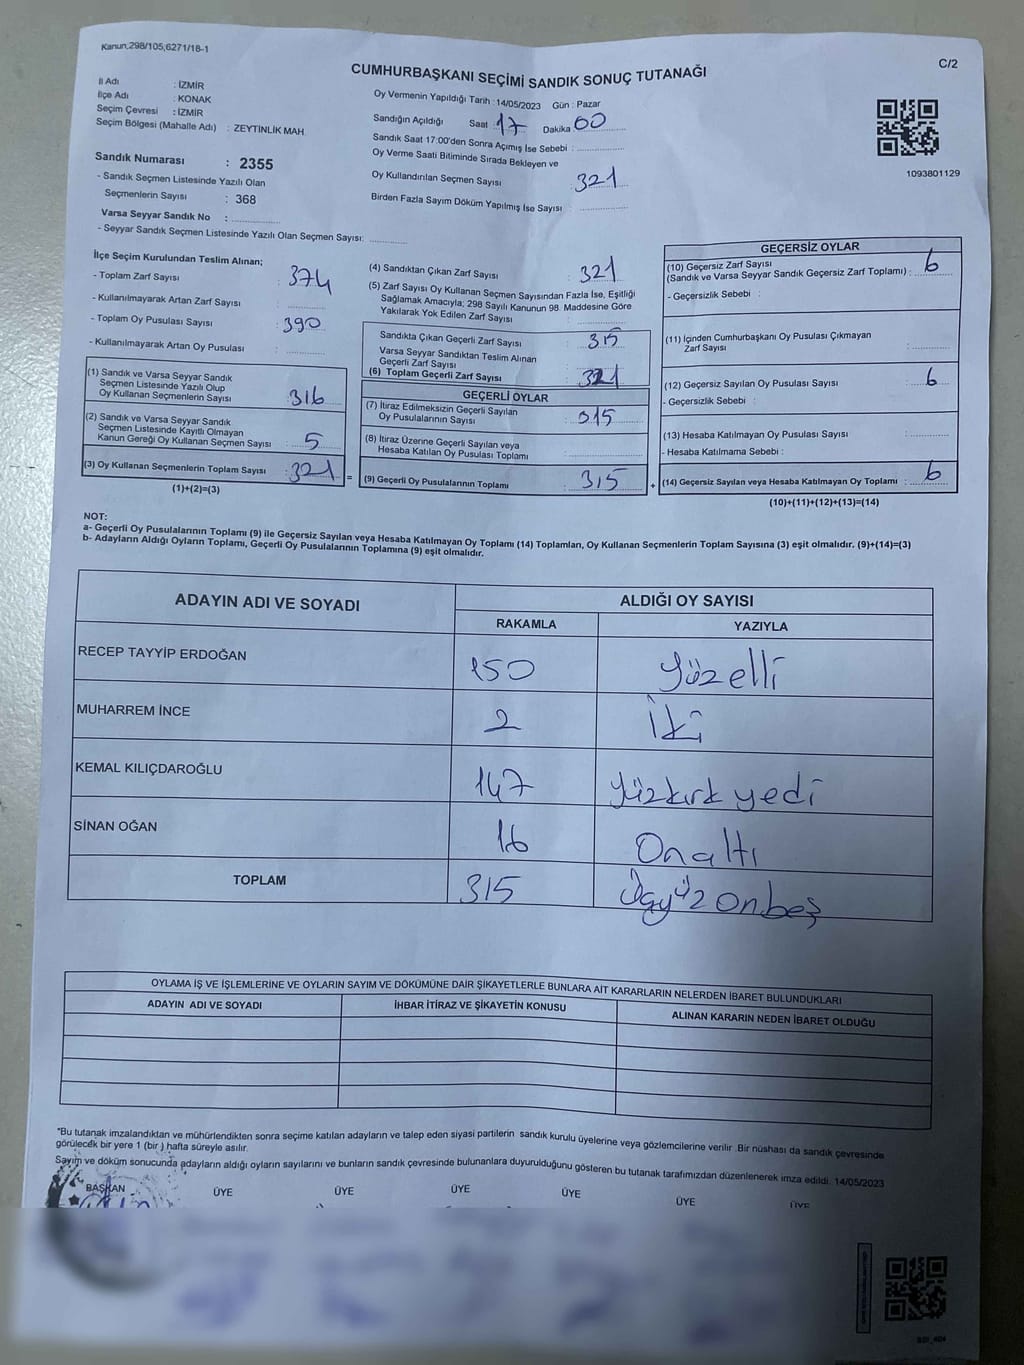 Kanun;298/105;6271/18-1
C/2
CUMHURBAŞKANI SEÇİMİ SANDIK SONUÇ TUTANAĞI
İl Adı : İZMİR
İlçe Adı : KONAK
Seçim Çevresi : İZMİR
Seçim Bölgesi (Mahalle Adı) : ZEYTİNLİK MAH.
Sandık Numarası : 2355
- Sandık Seçmen Listesinde Yazılı Olan
Seçmenlerin Sayısı : 368
Varsa Seyyar Sandık No :
- Seyyar Sandık Seçmen Listesinde Yazılı Olan Seçmen Sayısı:
Oy Vermenin Yapıldığı Tarih : 14/05/2023 Gün : Pazar
Sandığın Açıldığı Saat 17 Dakika 00
Sandık Saat 17:00'den Sonra Açımış İse Sebebi :
Oy Verme Saati Bitiminde Sırada Bekleyen ve
Oy Kullandırılan Seçmen Sayısı : 321
Birden Fazla Sayım Döküm Yapılmış İse Sayısı :
1093801129
İlçe Seçim Kurulundan Teslim Alınan;
- Toplam Zarf Sayısı : 374
- Kullanılmayarak Artan Zarf Sayısı :
- Toplam Oy Pusulası Sayısı : 390
- Kullanılmayarak Artan Oy Pusulası :
(1) Sandık ve Varsa Seyyar Sandık
Seçmen Listesinde Yazılı Olup
Oy Kullanan Seçmenlerin Sayısı : 316
(2) Sandık ve Varsa Seyyar Sandık
Seçmen Listesinde Kayıtlı Olmayan
Kanun Gereği Oy Kullanan Seçmen Sayısı : 5
(3) Oy Kullanan Seçmenlerin Toplam Sayısı : 321 =
(1)+(2)=(3)
(4) Sandıktan Çıkan Zarf Sayısı : 321
(5) Zarf Sayısı Oy Kullanan Seçmen Sayısından Fazla İse, Eşitliği
Sağlamak Amacıyla; 298 Sayılı Kanunun 98. Maddesine Göre
Yakılarak Yok Edilen Zarf Sayısı :
Sandıkta Çıkan Geçerli Zarf Sayısı : 315
Varsa Seyyar Sandıktan Teslim Alınan
Geçerli Zarf Sayısı :
(6) Toplam Geçerli Zarf Sayısı : 321
GEÇERLİ OYLAR
(7) İtiraz Edilmeksizin Geçerli Sayılan
Oy Pusulalarının Sayısı : 315
(8) İtiraz Üzerine Geçerli Sayılan veya
Hesaba Katılan Oy Pusulası Toplamı :
(9) Geçerli Oy Pusulalarının Toplamı : 315 +
GEÇERSİZ OYLAR
(10) Geçersiz Zarf Sayısı
(Sandık ve Varsa Seyyar Sandık Geçersiz Zarf Toplamı) : 6
- Geçersizlik Sebebi :
(11) İçinden Cumhurbaşkanı Oy Pusulası Çıkmayan
Zarf Sayısı :
(12) Geçersiz Sayılan Oy Pusulası Sayısı : 6
- Geçersizlik Sebebi :
(13) Hesaba Katılmayan Oy Pusulası Sayısı :
- Hesaba Katılmama Sebebi :
(14) Geçersiz Sayılan veya Hesaba Katılmayan Oy Toplamı : 6
(10)+(11)+(12)+(13)=(14)
NOT:
a- Geçerli Oy Pusulalarının Toplamı (9) ile Geçersiz Sayılan veya Hesaba Katılmayan Oy Toplamı (14) Toplamları, Oy Kullanan Seçmenlerin Toplam Sayısına (3) eşit olmalıdır. (9)+(14)=(3)
b- Adayların Aldığı Oyların Toplamı, Geçerli Oy Pusulalarının Toplamına (9) eşit olmalıdır.
ADAYIN ADI VE SOYADI ALDIĞI OY SAYISI
RAKAMLA YAZIYLA
RECEP TAYYİP ERDOĞAN 150 Yüzelli
MUHARREM İNCE 2 İki
KEMAL KILIÇDAROĞLU 147 Yüzkırk yedi
SİNAN OĞAN 16 Onaltı
TOPLAM 315 Üçyüz onbeş
OYLAMA İŞ VE İŞLEMLERİNE VE OYLARIN SAYIM VE DÖKÜMÜNE DAİR ŞİKAYETLERLE BUNLARA AİT KARARLARIN NELERDEN İBARET BULUNDUKLARI
ADAYIN ADI VE SOYADI İHBAR İTİRAZ VE ŞİKAYETİN KONUSU ALINAN KARARIN NEDEN İBARET OLDUĞU
"Bu tutanak imzalandıktan ve mühürlendikten sonra seçime katılan adayların ve talep eden siyasi partilerin sandık kurulu üyelerine veya gözlemcilerine verilir .Bir nüshası da sandık çevresinde
görülecek bir yere 1 (bir ) hafta süreyle asılır.
Sayım ve döküm sonucunda adayların aldığı oyların sayılarını ve bunların sandık çevresinde bulunanlara duyurulduğunu gösteren bu tutanak tarafımızdan düzenlenerek imza edildi. 14/05/2023
BAŞKAN ÜYE ÜYE ÜYE ÜYE ÜYE ÜYE